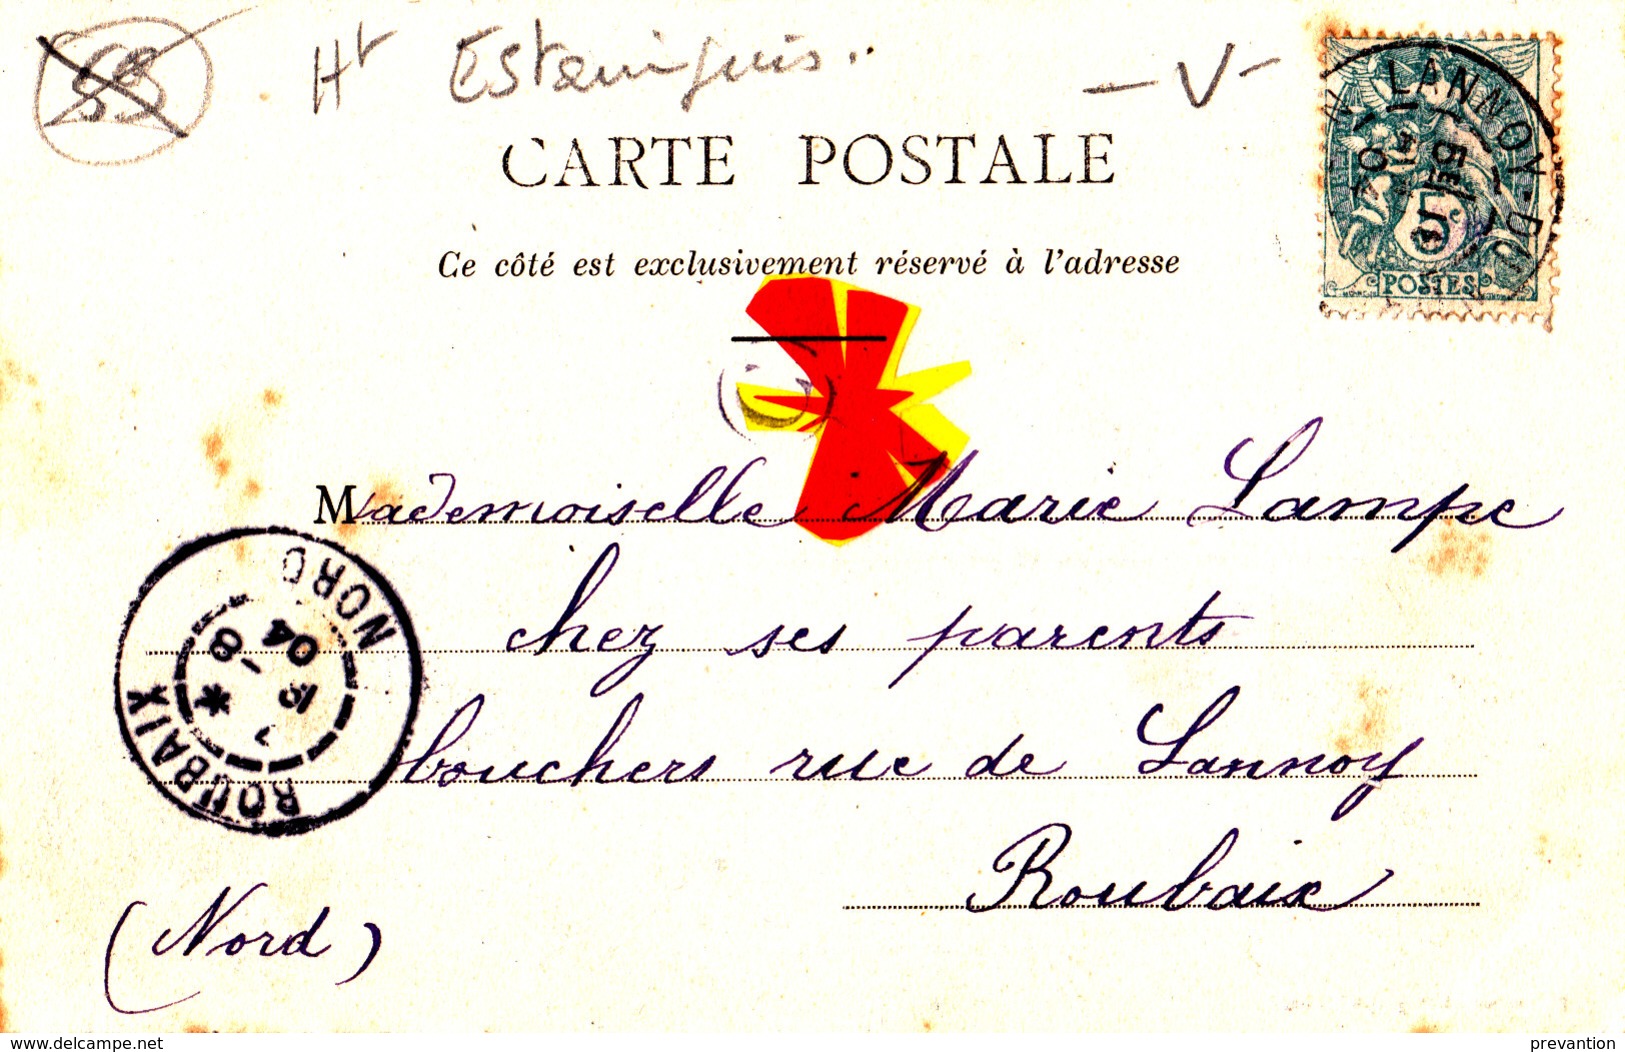 55
Ht
- V -
CARTE POSTALE
Ce côté est exclusivement réservé à l'adresse
LANNOY-DU-N
5E
04
5c
POSTES
Mademoiselle Marie Lampe
chez ses parents
bouchers rue de Lannoy
Roubaix
(Nord)
ROUBAIX
NORD
* -8
04
www.delcampe.net
prevantion